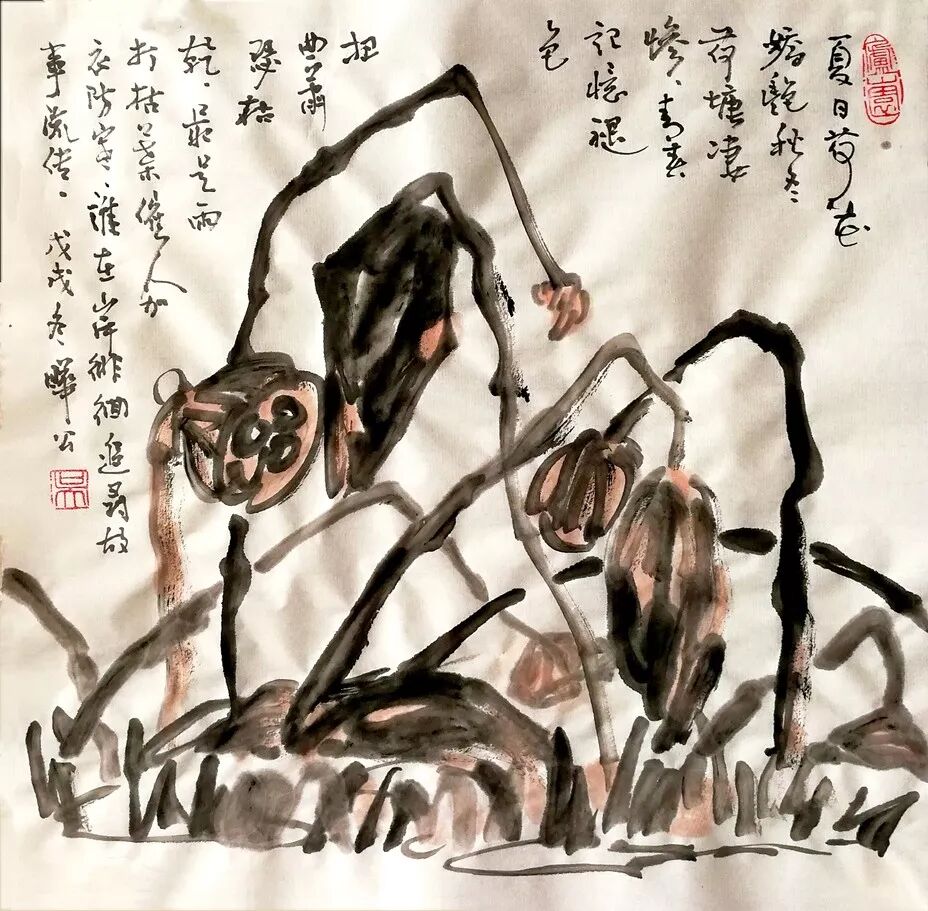 夏日荷花
娇艳秋冬
荷塘凄
惨、青春
记忆褪
色
扭
曲萧
瑟枯
乾、最是雨
打枯叶催人加
衣防寒、谁在岸徘徊追寻故
事流传、戊戌冬晔公